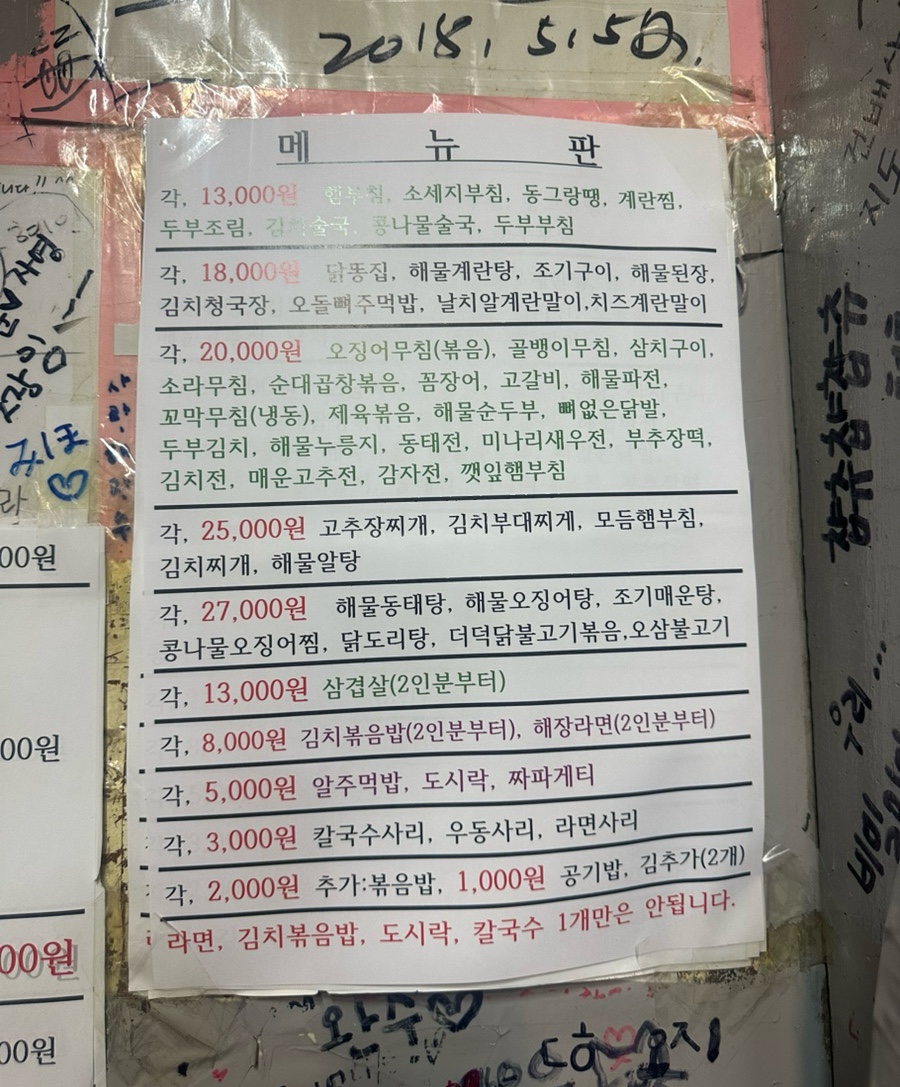 2018. 5.5일.
메 뉴 판
각, 13,000원 햄부침, 소세지부침, 동그랑땡, 계란찜,
두부조림, 김치술국, 콩나물술국, 두부부침
각, 18,000원 닭똥집, 해물계란탕, 조기구이, 해물된장,
김치청국장, 오돌뼈주먹밥, 날치알계란말이,치즈계란말이
각, 20,000원 오징어무침(볶음), 골뱅이무침, 삼치구이,
소라무침, 순대곱창볶음, 꼼장어, 고갈비, 해물파전,
꼬막무침(냉동), 제육볶음, 해물순두부, 뼈없은닭발,
두부김치, 해물누릉지, 동태전, 미나리새우전, 부추장떡,
김치전, 매운고추전, 감자전, 깻잎햄부침
각, 25,000원 고추장찌개, 김치부대찌게, 모듬햄부침,
김치찌개, 해물알탕
각, 27,000원 해물동태탕, 해물오징어탕, 조기매운탕,
콩나물오징어찜, 닭도리탕, 더덕닭불고기볶음,오삼불고기
각, 13,000원 삼겹살(2인분부터)
각, 8,000원 김치볶음밥(2인분부터), 해장라면(2인분부터)
각, 5,000원 알주먹밥, 도시락, 짜파게티
각, 3,000원 칼국수사리, 우동사리, 라면사리
각, 2,000원 추가:볶음밥, 1,000원 공기밥, 김추가(2개)
라면, 김치볶음밥, 도시락, 칼국수 1개만은 안됩니다.
니다!! ^^
00원
00원
00원
00원